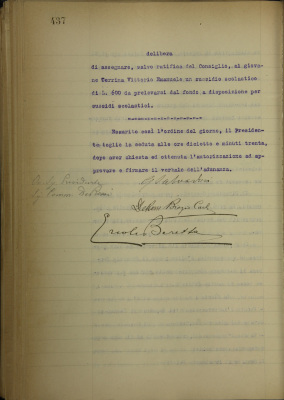 437
delibera
di assegnare, salvo ratifica del Consiglio, al giova-
ne Terrina Vittorio Emanuele un sussidio scolastico
di L. 600 da prelevarsi dal fondo a disposizione per
sussidi scolastici.
Esaurito così l'ordine del giorno, il Presiden-
te toglie la seduta alle ore diciotto e minuti trenta,
dopo aver chiesta ed ottenuta l'autorizzazione ad ap-
provare e firmare il verbale dell'adunanza.